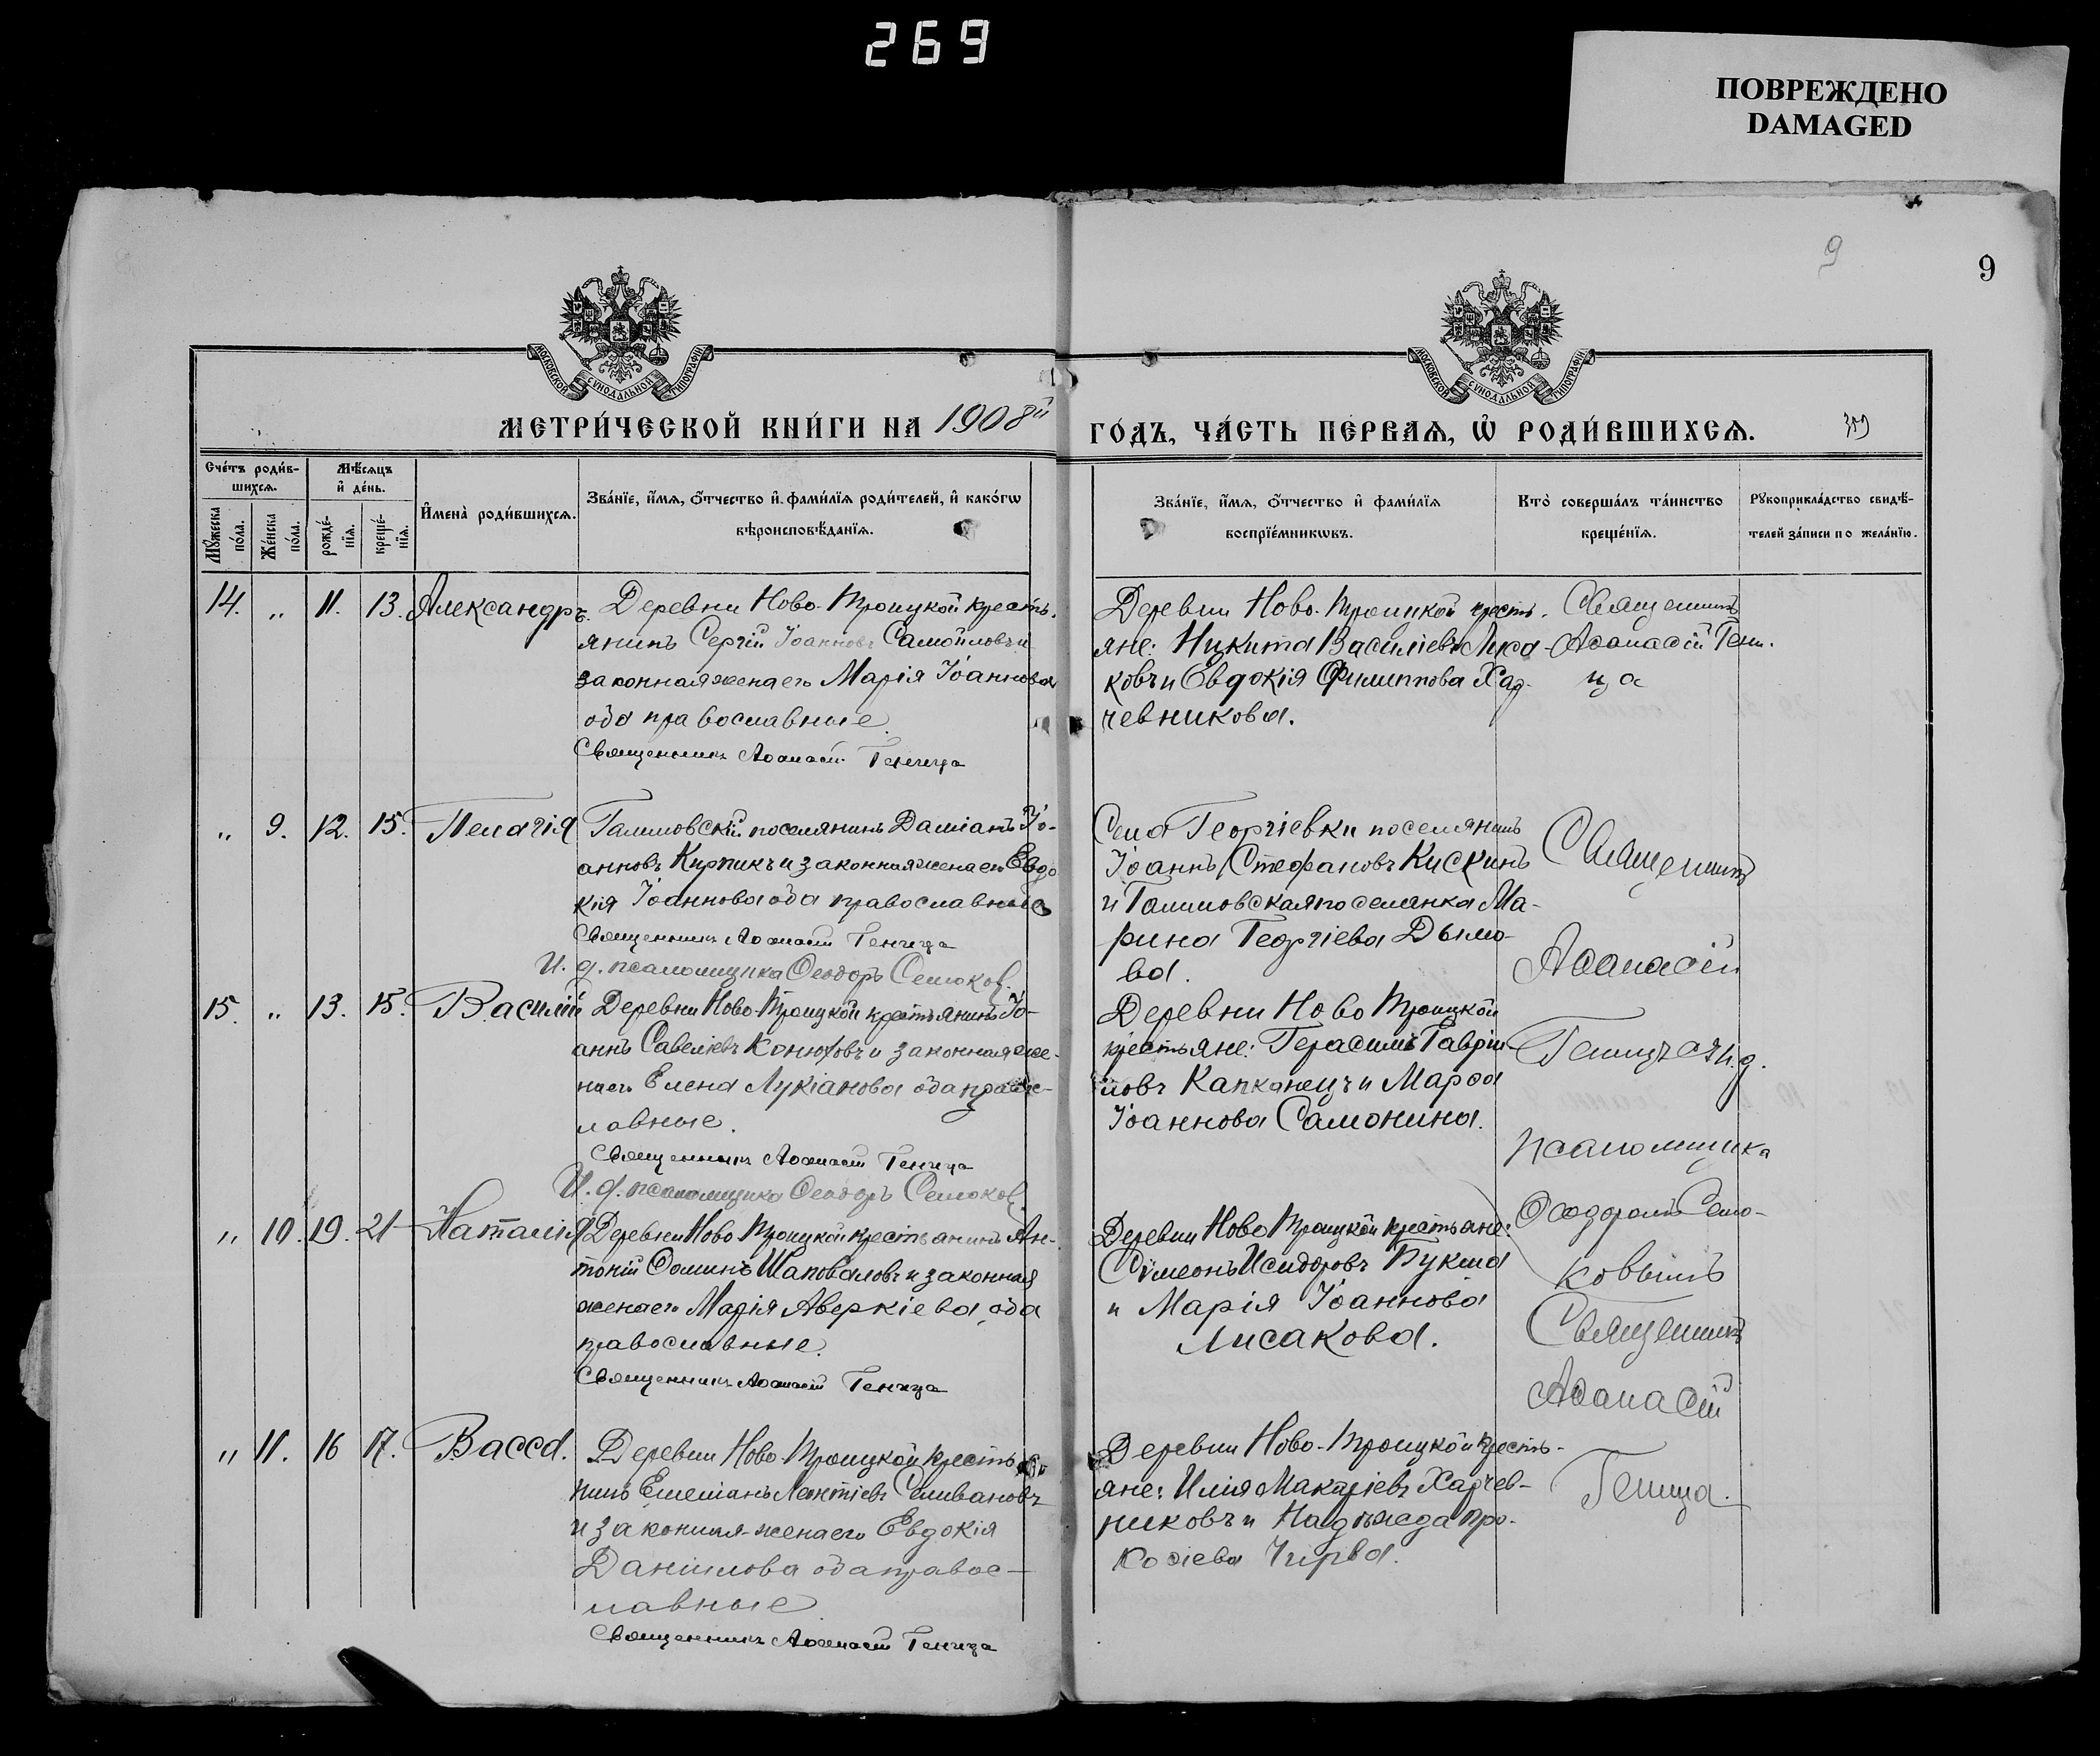 269
ПОВРЕЖДЕНО
DAMAGED
9
9
МОСКОВСКОЙ СУНОДАЛЬНОЙ ТИПОГРАФІИ
МОСКОВСКОЙ СУНОДАЛЬНОЙ ТИПОГРАФІИ
МЕТРИ́ЧЕСКОЙ КНИ́ГИ НА 1908й
ГО́ДЪ, ЧА́СТЬ ПЕ́РВАѦ, Ѡ҆ РОДИ́ВШИХСѦ.
Сче́тъ роди́в-
шихсѧ.
Мѣ́сѧцъ
и҆ де́нь.
Мꙋ́жеска
по́ла.
Же́нска
по́ла.
рожде́-
нїѧ.
креще́-
нїѧ.
И҆мена̀ роди́вшихсѧ.
Зва́нїе, и҆́мѧ, о҆́тчество и҆ фами́лїѧ роди́телей, и҆ како́гѡ
вѣроисповѣ́данїѧ.
Зва́нїе, и҆́мѧ, о҆́тчество и҆ фами́лїѧ
воспрїе́мникѡвъ.
Кто̀ соверша́лъ та́инство
креще́нїѧ.
Рꙋкоприкла́дство свидѣ́-
телей за́писи по жела́нїю.
14. „ 11. 13. Александръ.
Деревни Ново-Троицкой кресть-
янинъ Сергій Іоанновъ Самойловъ и
законная жена его Марія Іоаннова
оба православные.
Священникъ Аѳанасій Геница
Деревни Ново-Троицкой кресть-
яне: Никита Василіевъ Лиса-
ковъ и Евдокія Филиппова Хар-
чевникова.
Священникъ
Аѳанасій Гени-
ца
„ 9. 12. 15. Пелагія
поселянинъ Даміанъ Іо-
анновъ Кирпикъ и законная жена его Евдо
кія Іоаннова оба православные
Священникъ Аѳанасій Геница
И. д. псаломщика Ѳеодоръ Семоков.
Села Георгіевки поселянинъ
Іоаннъ Стефановъ Кискинъ
и поселянка Ма-
рина Георгіева Дымо-
ва.
Священникъ
Аѳанасій
Геница и. д.
псаломщика
Ѳеодоромъ Семо-
ковымъ
15. „ 13. 15. Василій
Деревни Ново-Троицкой крестьянинъ Іо-
аннъ Савеліевъ Конюховъ и законная же-
на его Елена Лукіанова оба правос-
лавные.
Священникъ Аѳанасій Геница
И. д. псаломщика Ѳеодоръ Семоков.
Деревни Ново Троицкой
крестьяне: Герасимъ Гаврі-
иловъ Капканецъ и Марѳа
Іоаннова Самонина.
„ 10. 19. 21 Наталія
Деревни Ново Троицкой крестьянинъ Ан-
тоній Ѳоминъ Шаповаловъ и законная
жена его Марія Аверкіева, оба
православные.
Священникъ Аѳанасій Геница
Деревни Ново Троицкой крестьяне:
Сумеонъ Исидоровъ Букша
и Марія Іоаннова
Лисакова.
Священникъ
Аѳанасій
Геница.
„ 11. 16 17. Васса.
Деревни Ново-Троицкой кресть
нинъ Емеліанъ Леонтіевъ Селивановъ
и законная жена его Евдокія
Даніилова оба правос-
лавные.
Священникъ Аѳанасій Геница
Деревни Ново-Троицкой кресть-
яне: Илія Макаріевъ Харчев-
никовъ и Надежда Про-
кофіева Чирва.